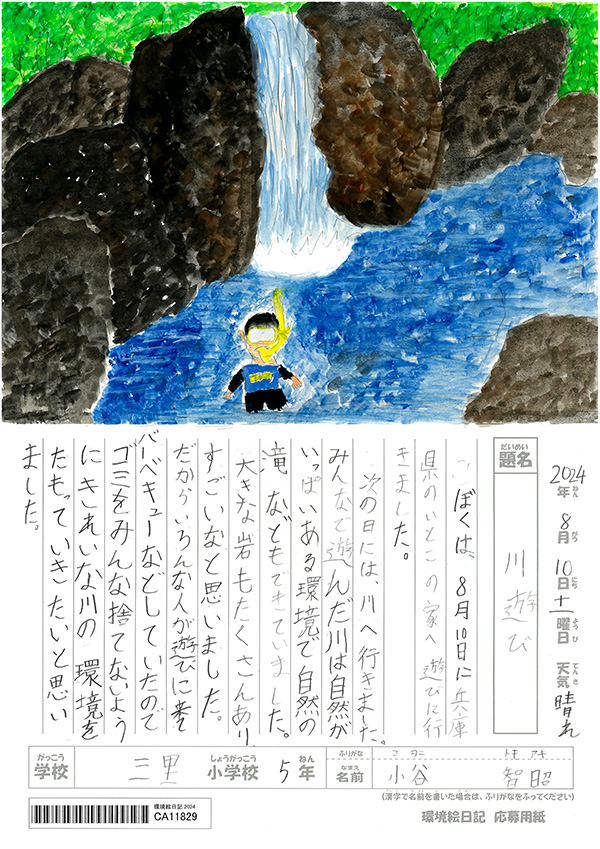 2024年 8月 10日 土曜日 天気 晴れ
ねん がつ にち ようび てんき
だいめい
題名
川遊び
ぼくは、8月10日に兵庫
県のいとこの家へ遊びに行
きました。
次の日には、川へ行きました。
みんなで遊んだ川は自然が
いっぱいある環境で自然の
滝などもできていました。
大きな岩もたくさんあり
すごいなと思いました。
だからいろんな人が遊びに来て
バーベキューなどしていたので
ゴミをみんな捨てないよう
にきれいな川の環境を
たもっていきたいと思い
ました。
がっこう しょうがっこう ねん ふりがな コタニ トモアキ
学校 三里 小学校 5年 なまえ 名前 小谷 智昭
(漢字で名前を書いた場合は、ふりがなをふってください)
環境絵日記 2024
CA11829
環境絵日記 応募用紙